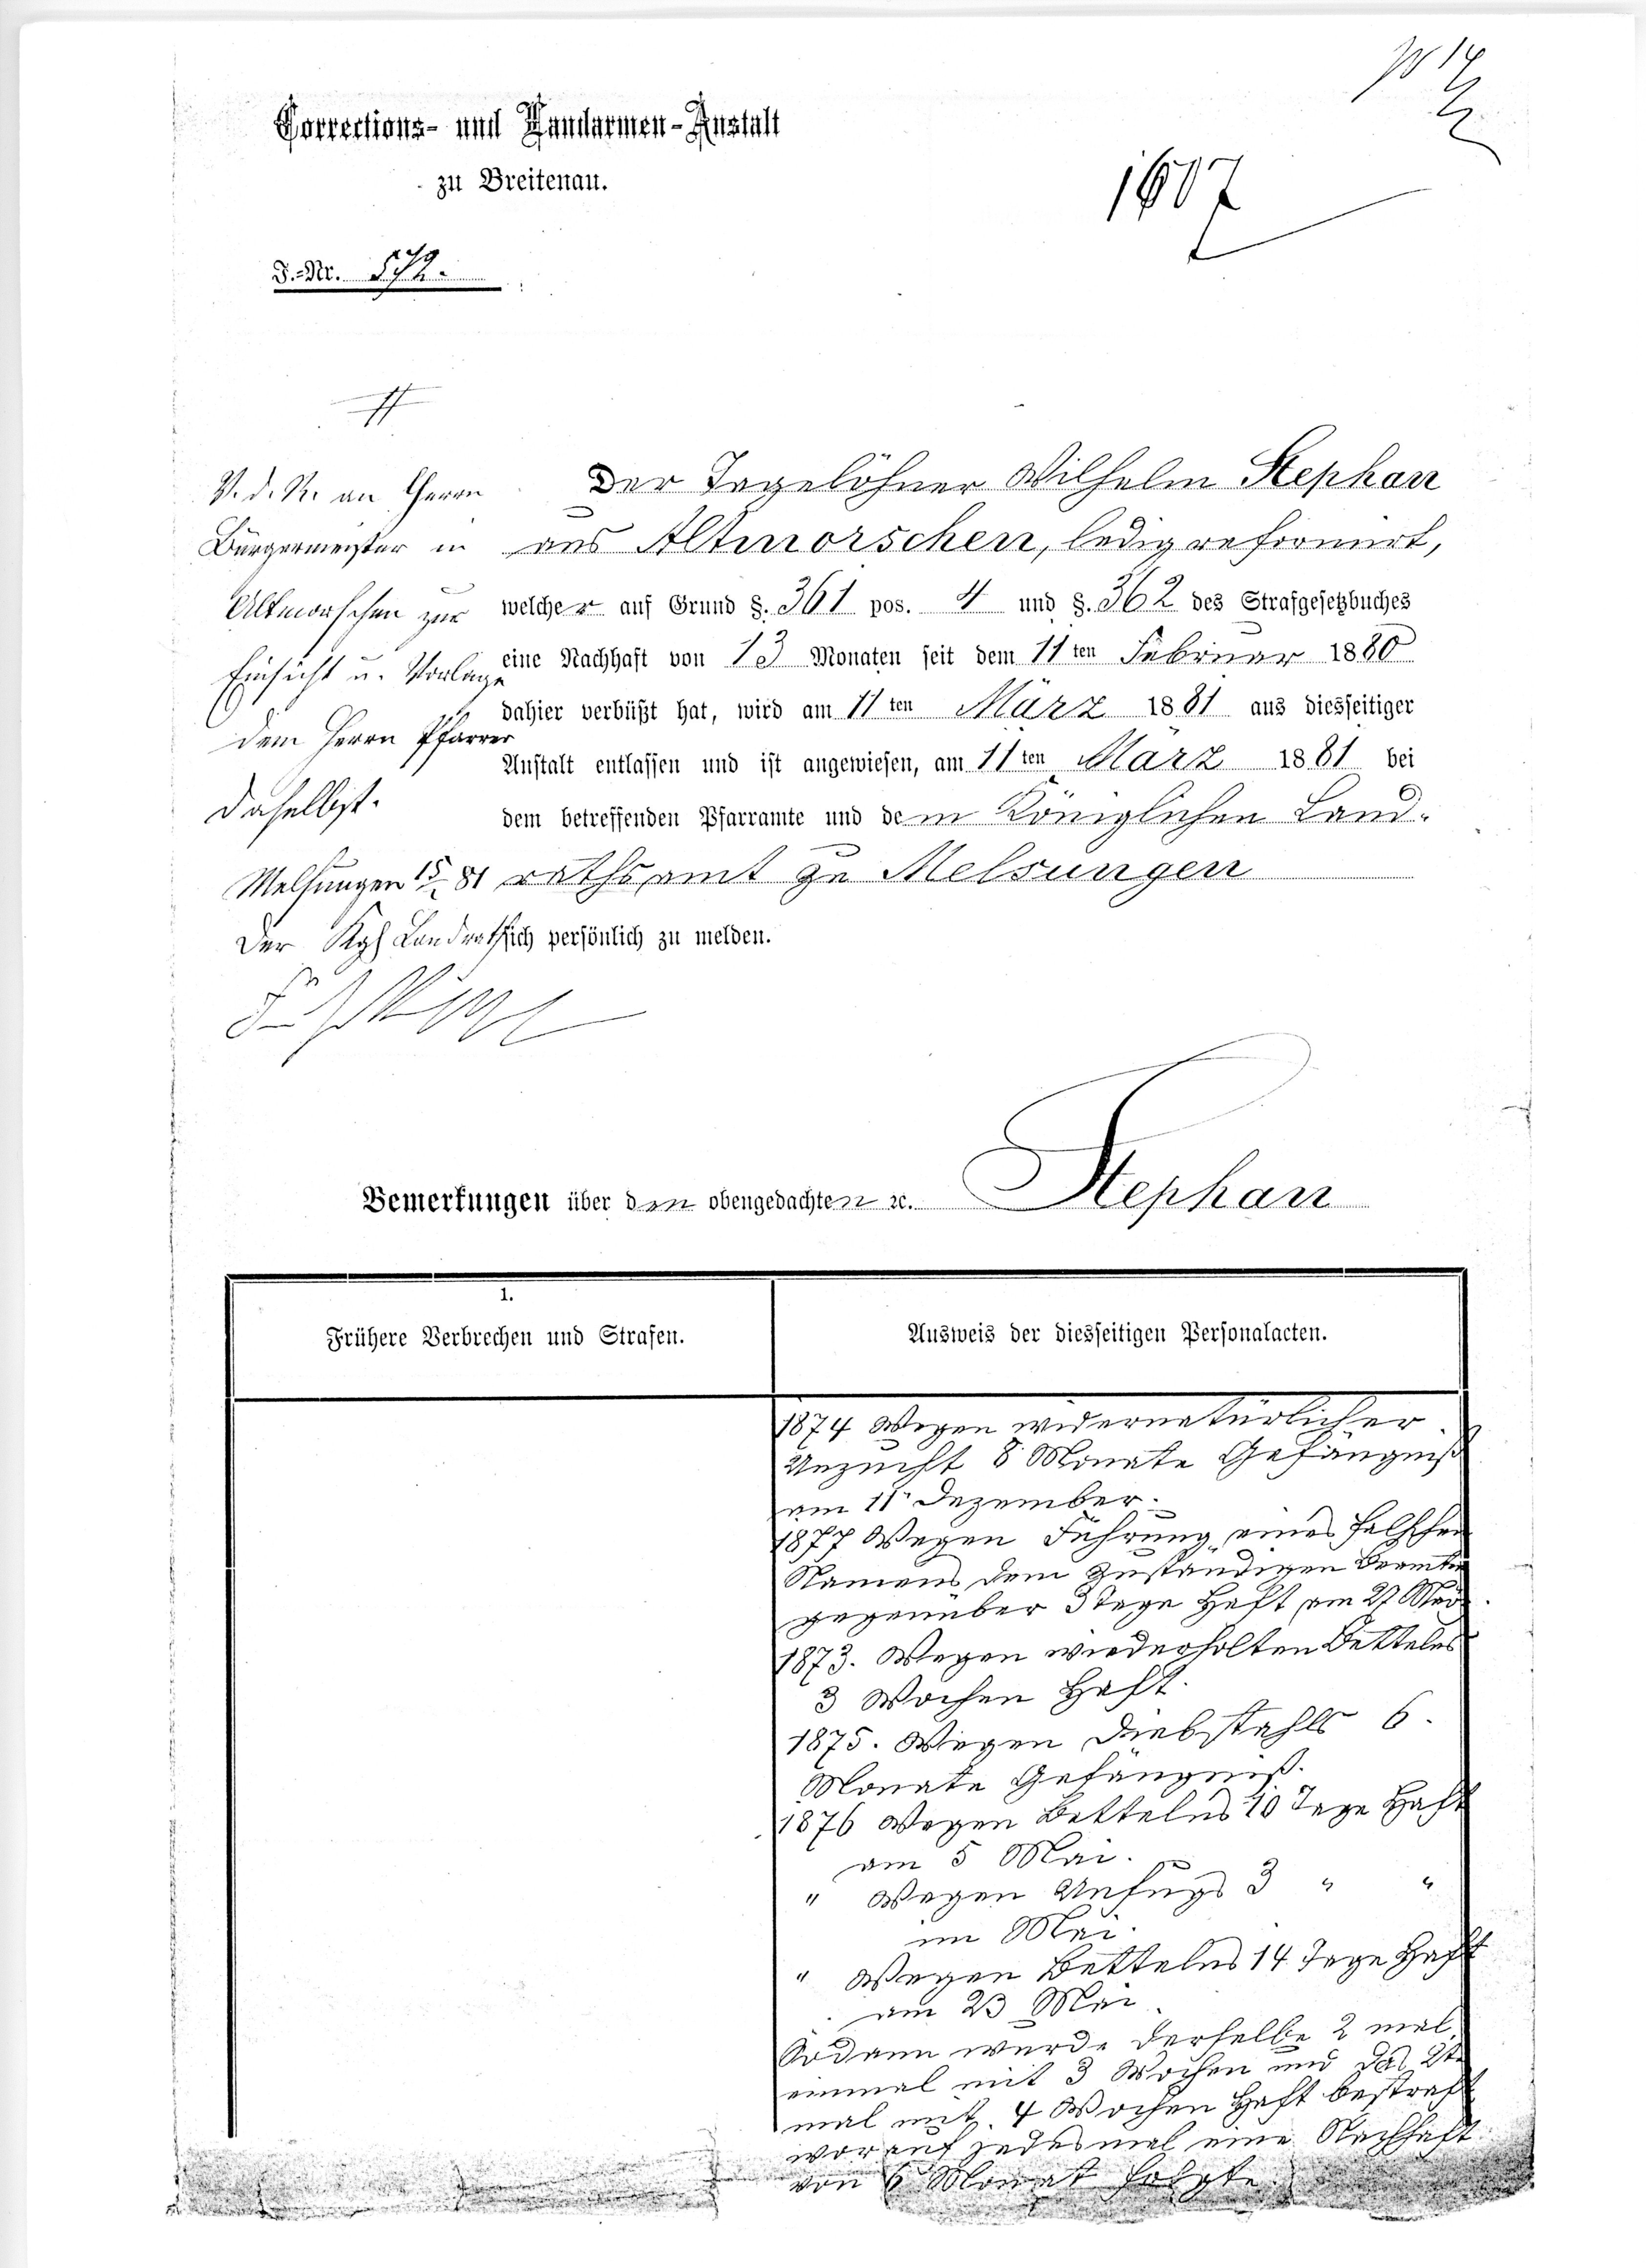 Corrections- und Landarmen-Anstalt
zu Breitenau.
1607
J.-Nr. 572.
V. d. R. an Herrn
Bürgermeister in
Altmorschen zur
Einsicht u. Vorlage
dem Herrn Pfarrer
daselbst.
Melsungen 15/2 81
Der Kgl Landrath
Der Tagelöhner Wilhelm Stephan
aus Altmorschen, ledig reformirt,
welcher auf Grund §. 361 pos. 4 und §. 362 des Strafgesetzbuches
eine Nachhaft von 13 Monaten seit dem 11ten Februar 1880
dahier verbüßt hat, wird am 11ten März 1881 aus diesseitiger
Anstalt entlassen und ist angewiesen, am 11ten März 1881 bei
dem betreffenden Pfarramte und dem Königlichen Land-
rathsamt zu Melsungen
sich persönlich zu melden.
Bemerkungen über den obengedachten ꝛc. Stephan
1.
Frühere Verbrechen und Strafen.
Ausweis der diesseitigen Personalacten.
1874 Wegen widernatürlicher
Unzucht 8 Monate Gefängniß
am 11. Dezember.
1877 Wegen Führung eines falschen
Namens dem zuständigen Beamten
gegenüber 3 Tage Haft am 27
1873. Wegen wiederholten Bettelns
3 Wochen Haft.
1875. Wegen Diebstahls 6
Monate Gefängniß.
1876 Wegen Bettelns 10 Tage Haft
am 5 Mai.
" Wegen Unfugs 3 " "
im Mai.
" Wegen Bettelns 14 Tage Haft
am 23 Mai.
Sodann wurde derselbe 2 mal,
einmal mit 3 Wochen und das 2te
mal mit 4 Wochen Haft bestraft
worauf jedesmal eine Nachhaft
von 6 Monat folgte.